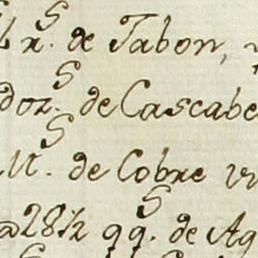 x.ˢ de Jabon,
doz.ˢ de Cascabe
M.ˢ de Cobre
@28½ qq.ˢ de Ag